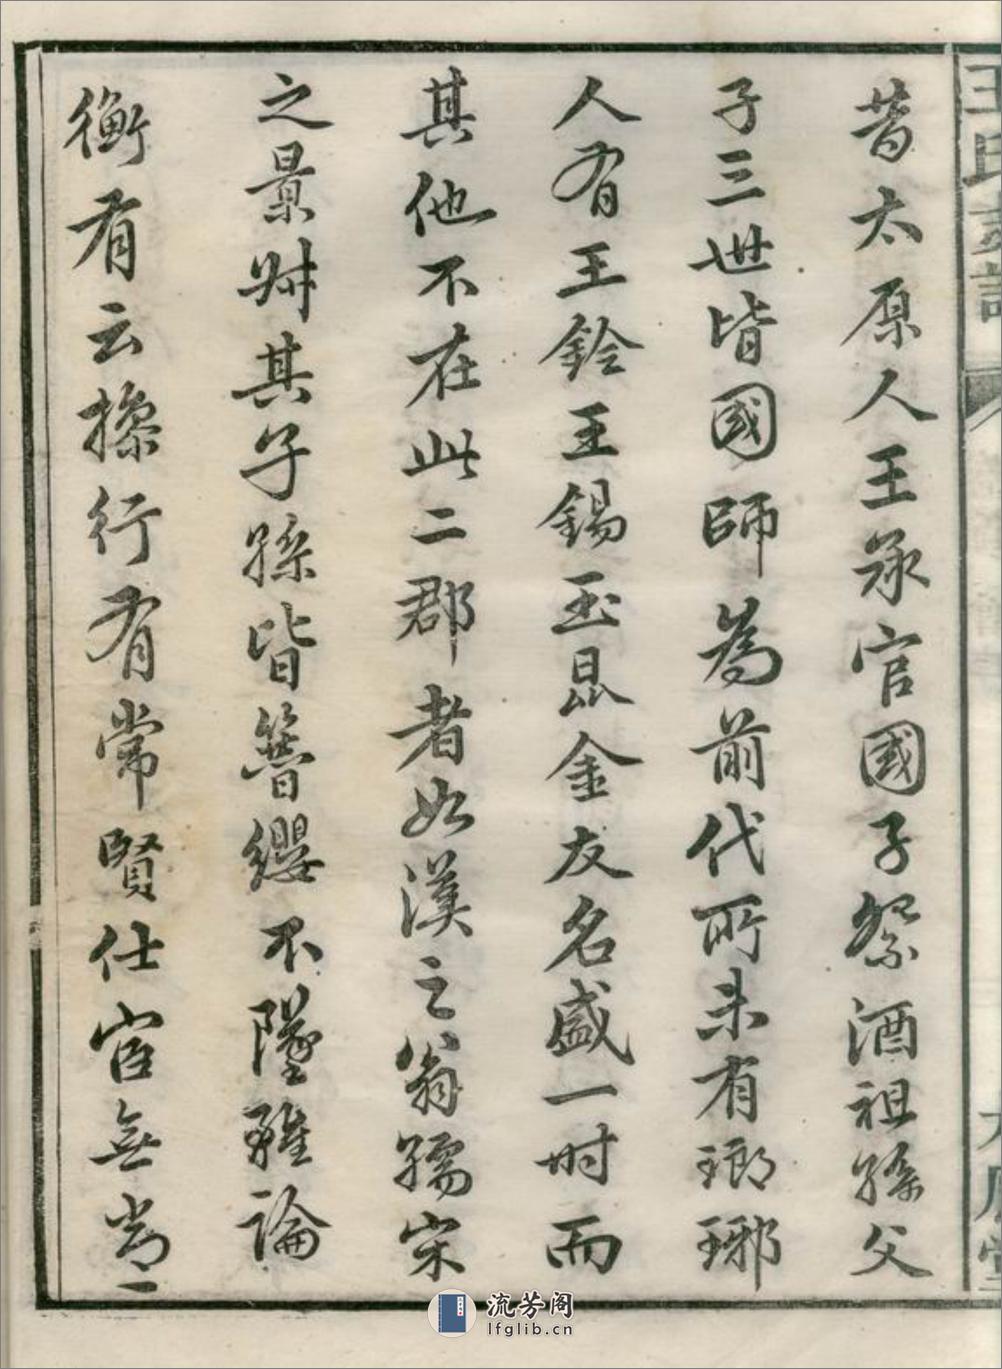 昔太原人王承官國子祭酒祖孫父
子三世皆國師為前代所未有瑯琊
人有王鈴王錫玉昆金友名盛一时而
其他不在此二郡者如漢之翁孺宋
之景叔其子孫皆簪纓不墜雖論
衡有云操行有常賢仕宦無常
王氏家譜
流芳阁
lfglib.cn